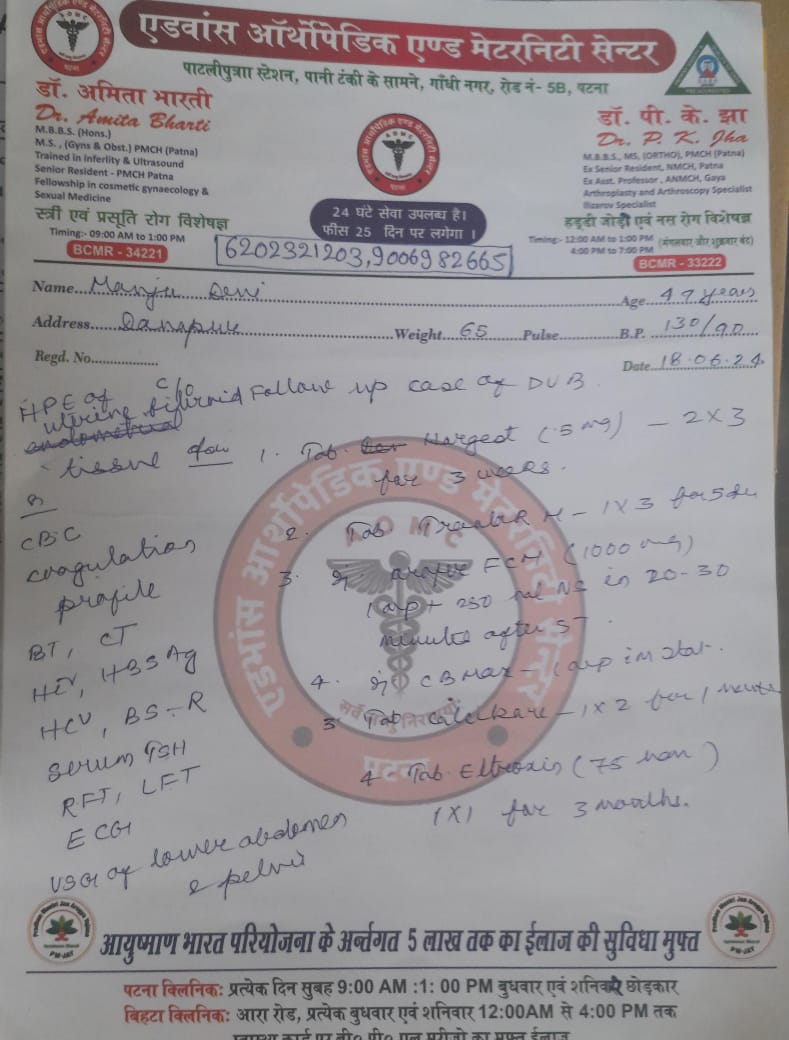 एडवांस ऑर्थोपेडिक एण्ड मेटरनिटी सेन्टर
पाटलीपुत्रा स्टेशन, पानी टंकी के सामने, गाँधी नगर, रोड नं- 5B, पटना
डॉ. अमिता भारती
Dr. Amita Bharti
M.B.B.S. (Hons.)
M.S., (Gyns & Obst.) PMCH (Patna)
Trained in Inferlity & Ultrasound
Senior Resident - PMCH Patna
Fellowship in cosmetic gynaecology &
Sexual Medicine
स्त्री एवं प्रसूति रोग विशेषज्ञ
Timing:- 09:00 AM to 1:00 PM
BCMR - 34221
24 घंटे सेवा उपलब्ध है।
फीस 25 दिन पर लगेगा।
6202321203, 9006982665
डॉ. पी. के. झा
Dr. P. K. Jha
M.B.B.S., MS, (ORTHO), PMCH (Patna)
Ex Senior Resident, NMCH, Patna
Ex Asst. Professor, ANMCH, Gaya
Arthroplasty and Arthroscopy Specialist
Ilizarov Specialist
हड्डी जोड़ी एवं नस रोग विशेषज्ञ
Timing:- 12:00 AM to 1:00 PM (मंगलवार और शुक्रवार बंद)
4:00 PM to 7:00 PM
BCMR - 33222
Name Manju Devi Age 47 years
Address Danapur Weight 65 Pulse B.P. 130/90
Regd. No. Date 18.06.24
C/O Follow up case of DUB.
HPE of
uterine fibroid
endometrial
tissue
1. Tab. (5 mg) - 2 x 3
for 3 weeks.
2. Tab - 1 x 3 for 5
3. FCM (1000 mg)
1 amp + 250 ml NS in 20-30
minutes after ST.
4. CB Max - 1 amp im stat.
3 Tab - 1 x 2 for 1
4 Tab. Eltroxin (75 )
1x1 for 3 months.
CBC
coagulation
profile
BT, CT
HIV, HBSAg
HCV, BS-R
Serum TSH
RFT, LFT
ECG
USG of lower abdomen
& pelvis
आयुष्मान भारत परियोजना के अर्न्तगत 5 लाख तक का ईलाज की सुविधा मुफ्त
PM-JAY
पटना क्लिनिक: प्रत्येक दिन सुबह 9:00 AM :1: 00 PM बुधवार एवं शनिवार छोड़कर
बिहटा क्लिनिक: आरा रोड, प्रत्येक बुधवार एवं शनिवार 12:00AM से 4:00 PM तक